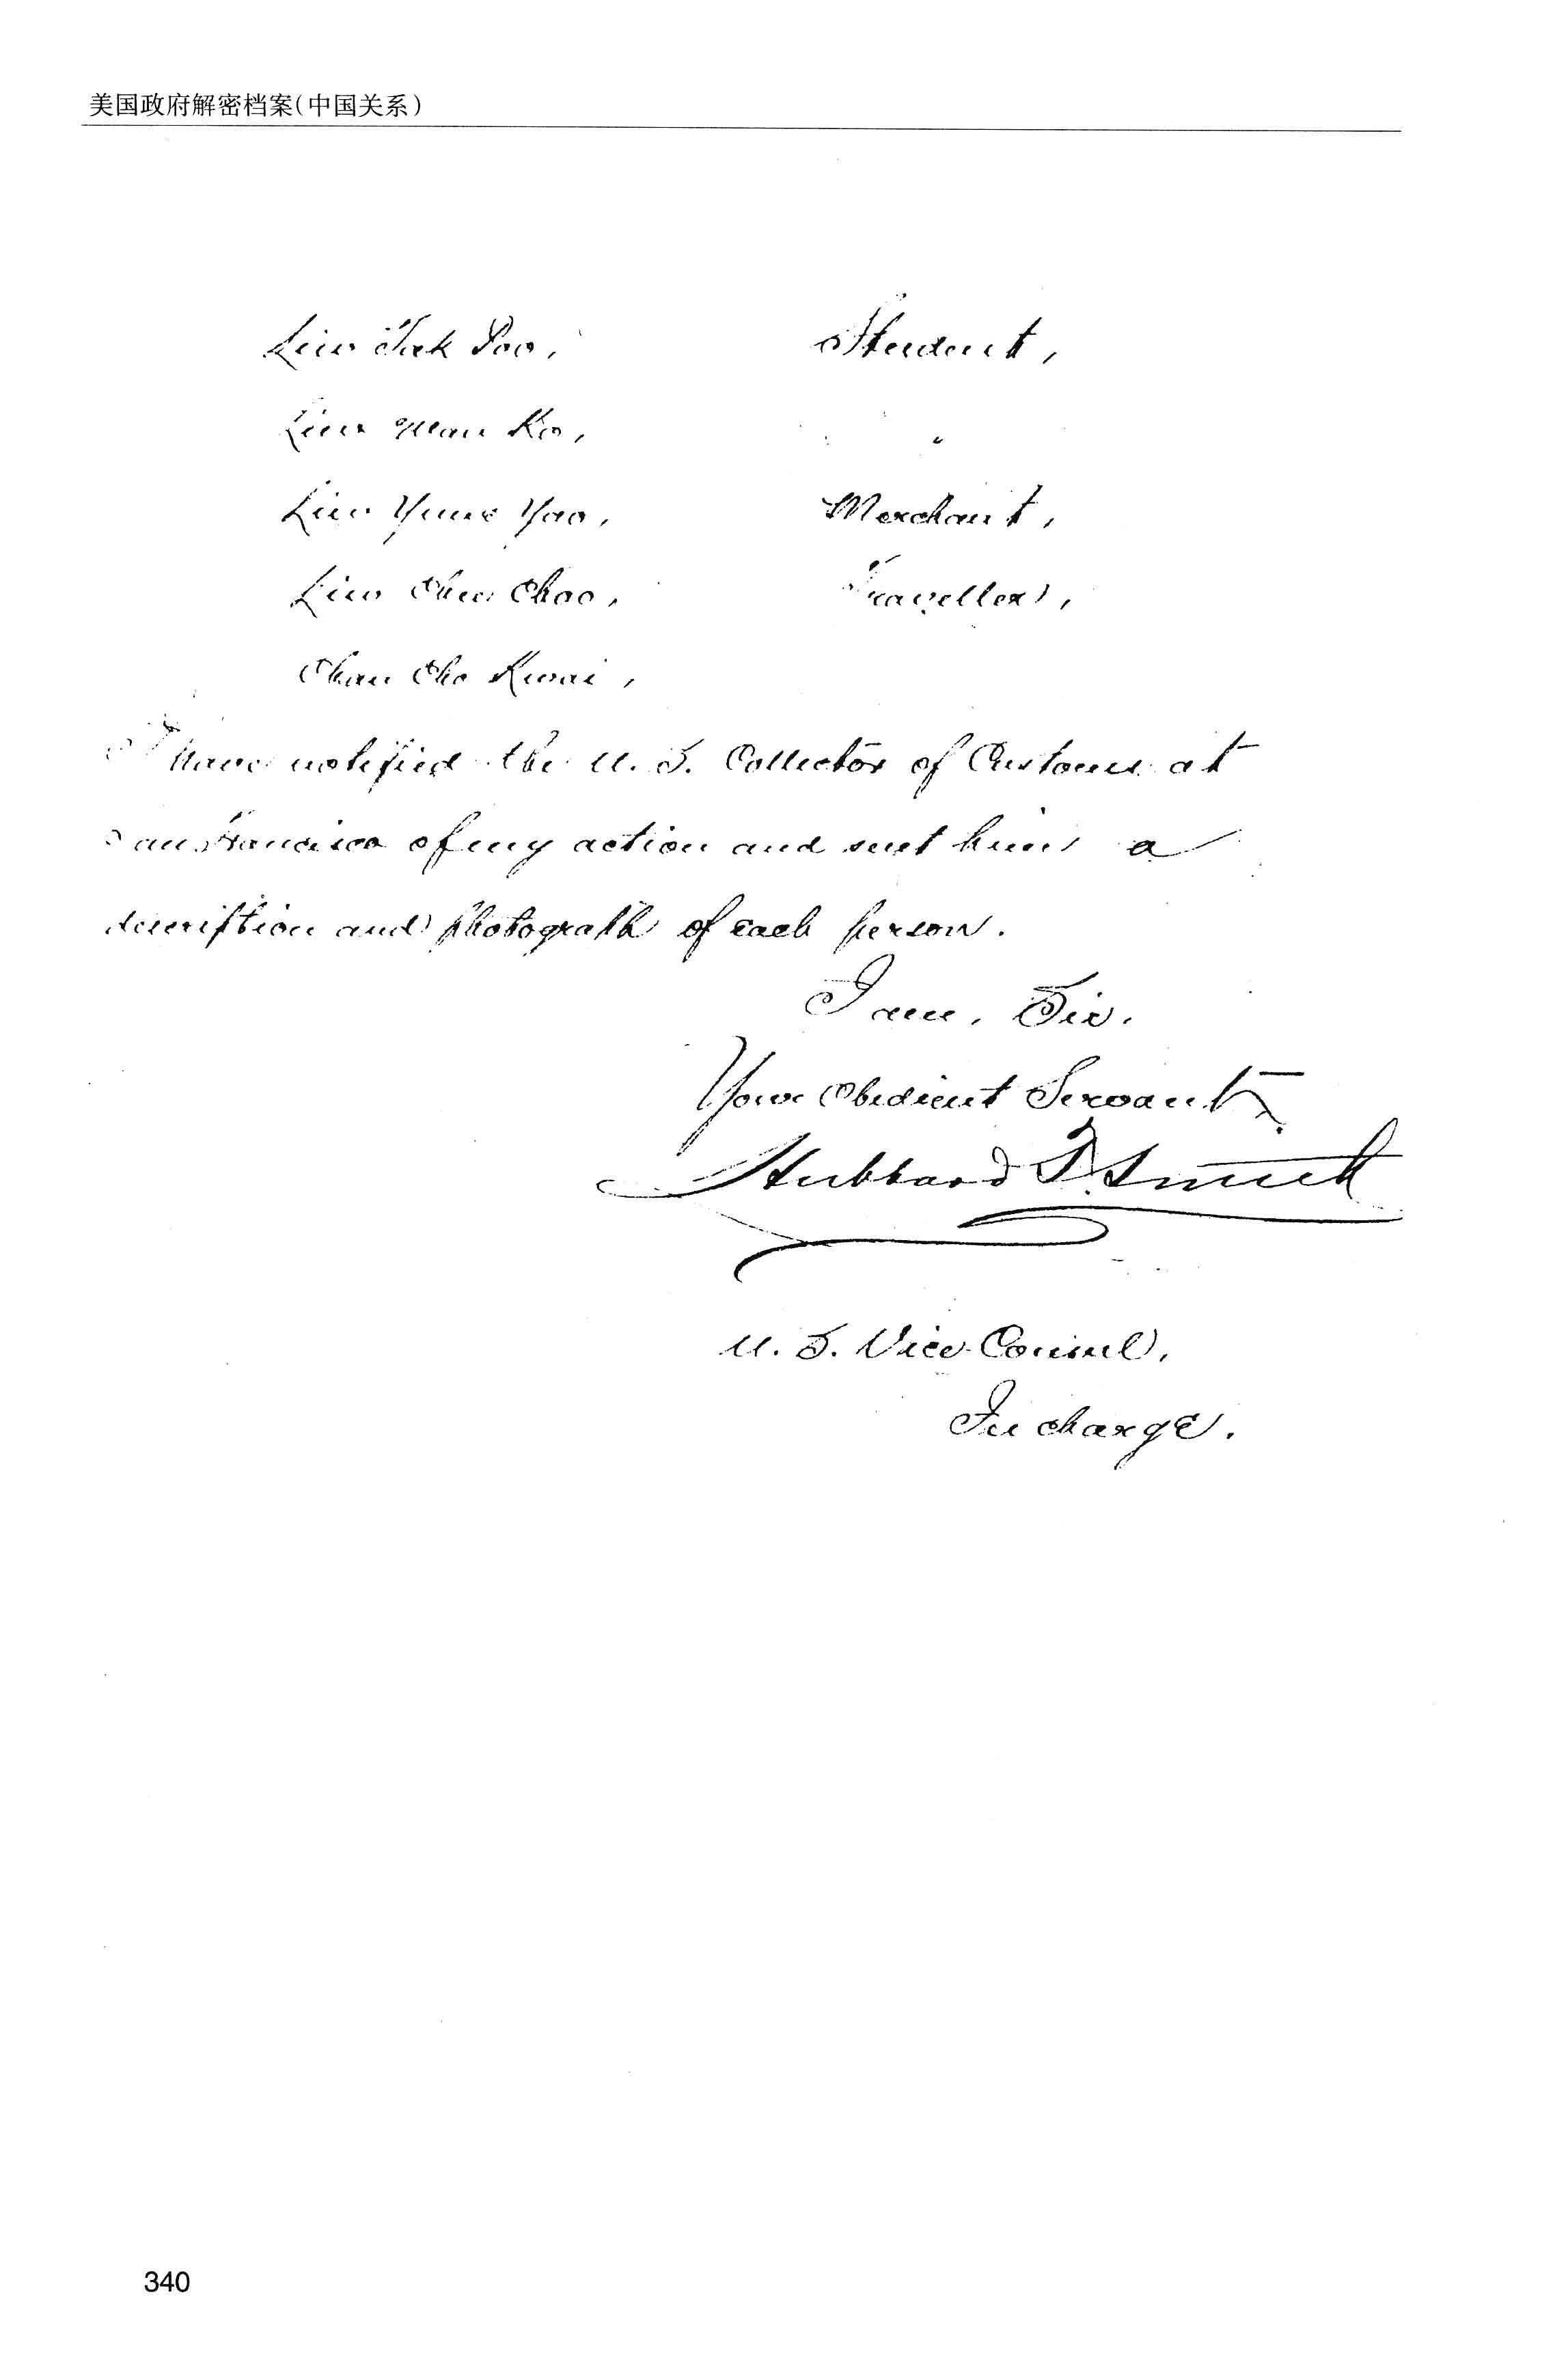 美国政府解密档案(中国关系)
Liw Tak Poo, Student,
Liw Man Ko, "
Liw Yune Yao, Merchant,
Liw Chew Choo, Traveller,
Chan Cho Kwai,
I have notified the U. S. Collector of Customs at
San Francisco of my action and sent him a
description and photograph of each person.
I am, Sir.
Your Obedient Servant
Hubbard T. Smith
U. S. Vice Consul,
In charge.
340